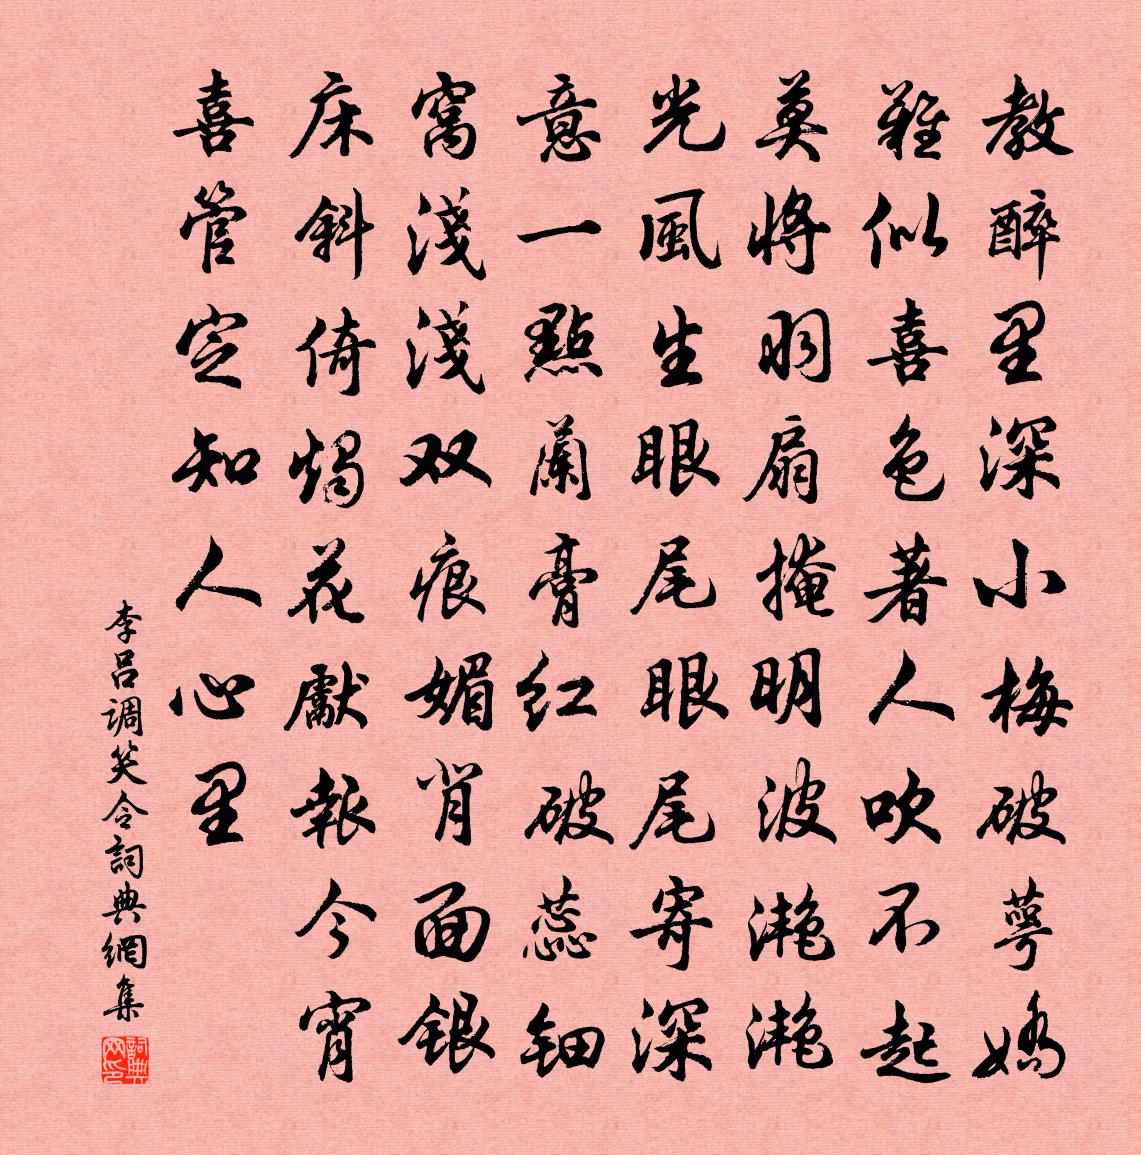 教醉里深小梅破萼嬌
難似喜色著人吹不起
莫將羽扇掩明波滟滟
光風生眼尾眼尾寄深
意一點蘭膏红破蕊钿
窩淺淺双痕媚肖面银
床斜倚燭花獻報今宵
喜管定知人心里
李呂调笑令詞典網集
詞典网印